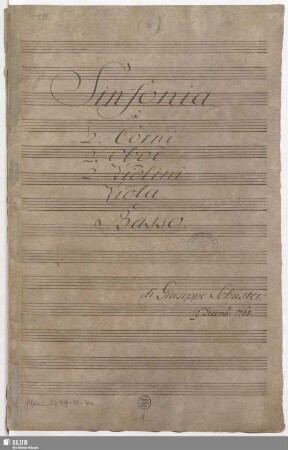 Sinfonia
a
2. Corni
2. Oboi
2. Violini
Viola
e
Basso.
di Giuseppe Schuster.
Mus. 3549-N-
1
SLUB